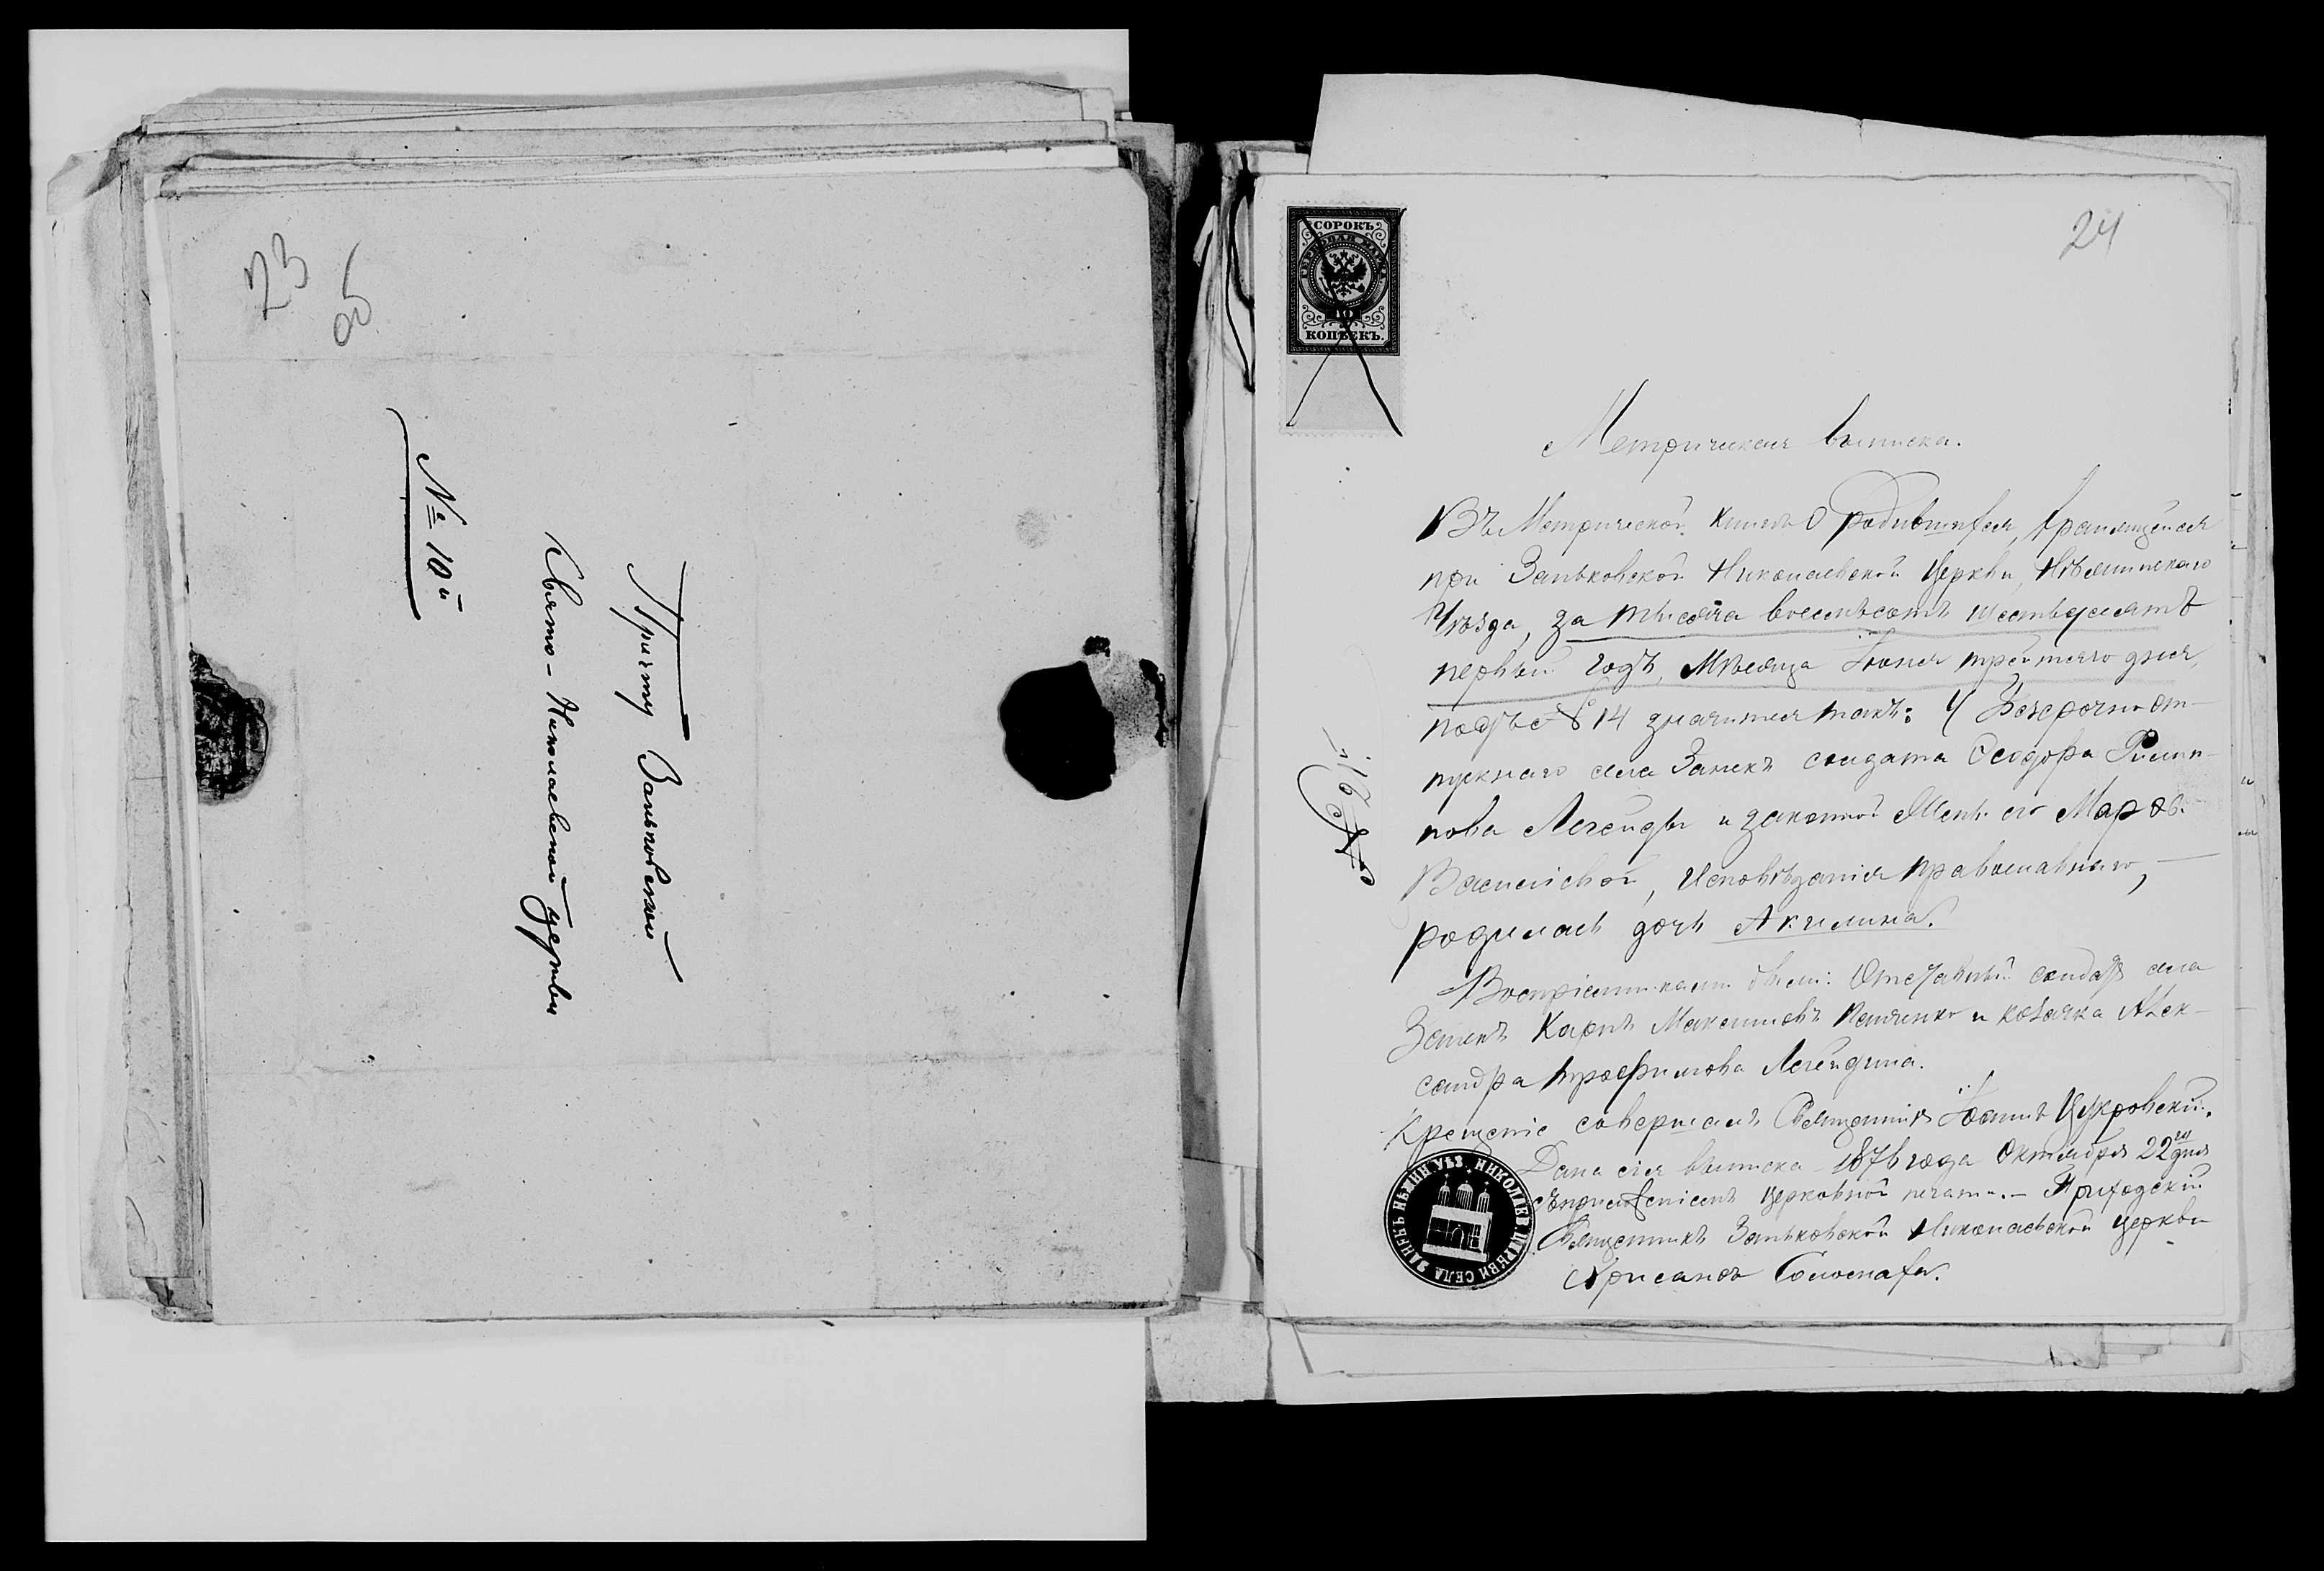 23
об
№ 10й
Причту Заньковской
Свято-Николаевской церкви
24
СОРОКЪ
ГЕРБОВАЯ МАРКА
40
КОПѢЕКЪ.
Метрическая выписка.
Въ Метрической книгѣ о родившихся, хранящейся
при Заньковской Николаевской Церкви, Нѣжинскаго
Уѣзда, за тысяча восемьсотъ шестьдесятъ
первый годъ, Мѣсяца Іюня третьяго дня,
подъ № 14 значится такъ: У Безсрочноот-
пускнаго села Занекъ солдата Ѳеодора Филип-
пова Легейды и законной жены его Марѳы
Василіевой, Исповѣданія православнаго,
родилась дочь Акилина.
Воспріемниками были: Отставный солдатъ села
Занекъ Карпъ Максимовъ и козачка Алек-
сандра Трофимова Легейдина.
Крещеніе совершалъ Священникъ Іоаннъ Цукровскій.
Дана сія выписка 1876 года Октября 22 дня
съ приложеніемъ церковной печати. – Приходскій
Священникъ Заньковской Николаевской церкви
Хрисанѳъ
НИКОЛАЕВ. ЦЕРКВИ СЕЛА ЗАНЕКЪ НѢЖИН УѢЗ.